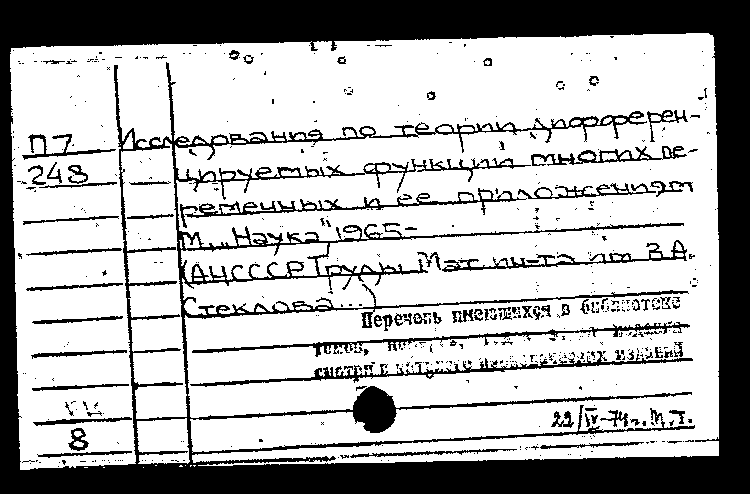 П7 Исследования по теории дифферен-
248 цируемых функций многих пе-
ременных и ее приложениям
М., "Наука", 1965-
(АН СССР Труды Мат. ин-та им. В.А.
Стеклова...)
Перечень имеющихся в библиотеке
томов,
смотри в каталоге периодических изданий
8
22/IV-74г. М.Т.